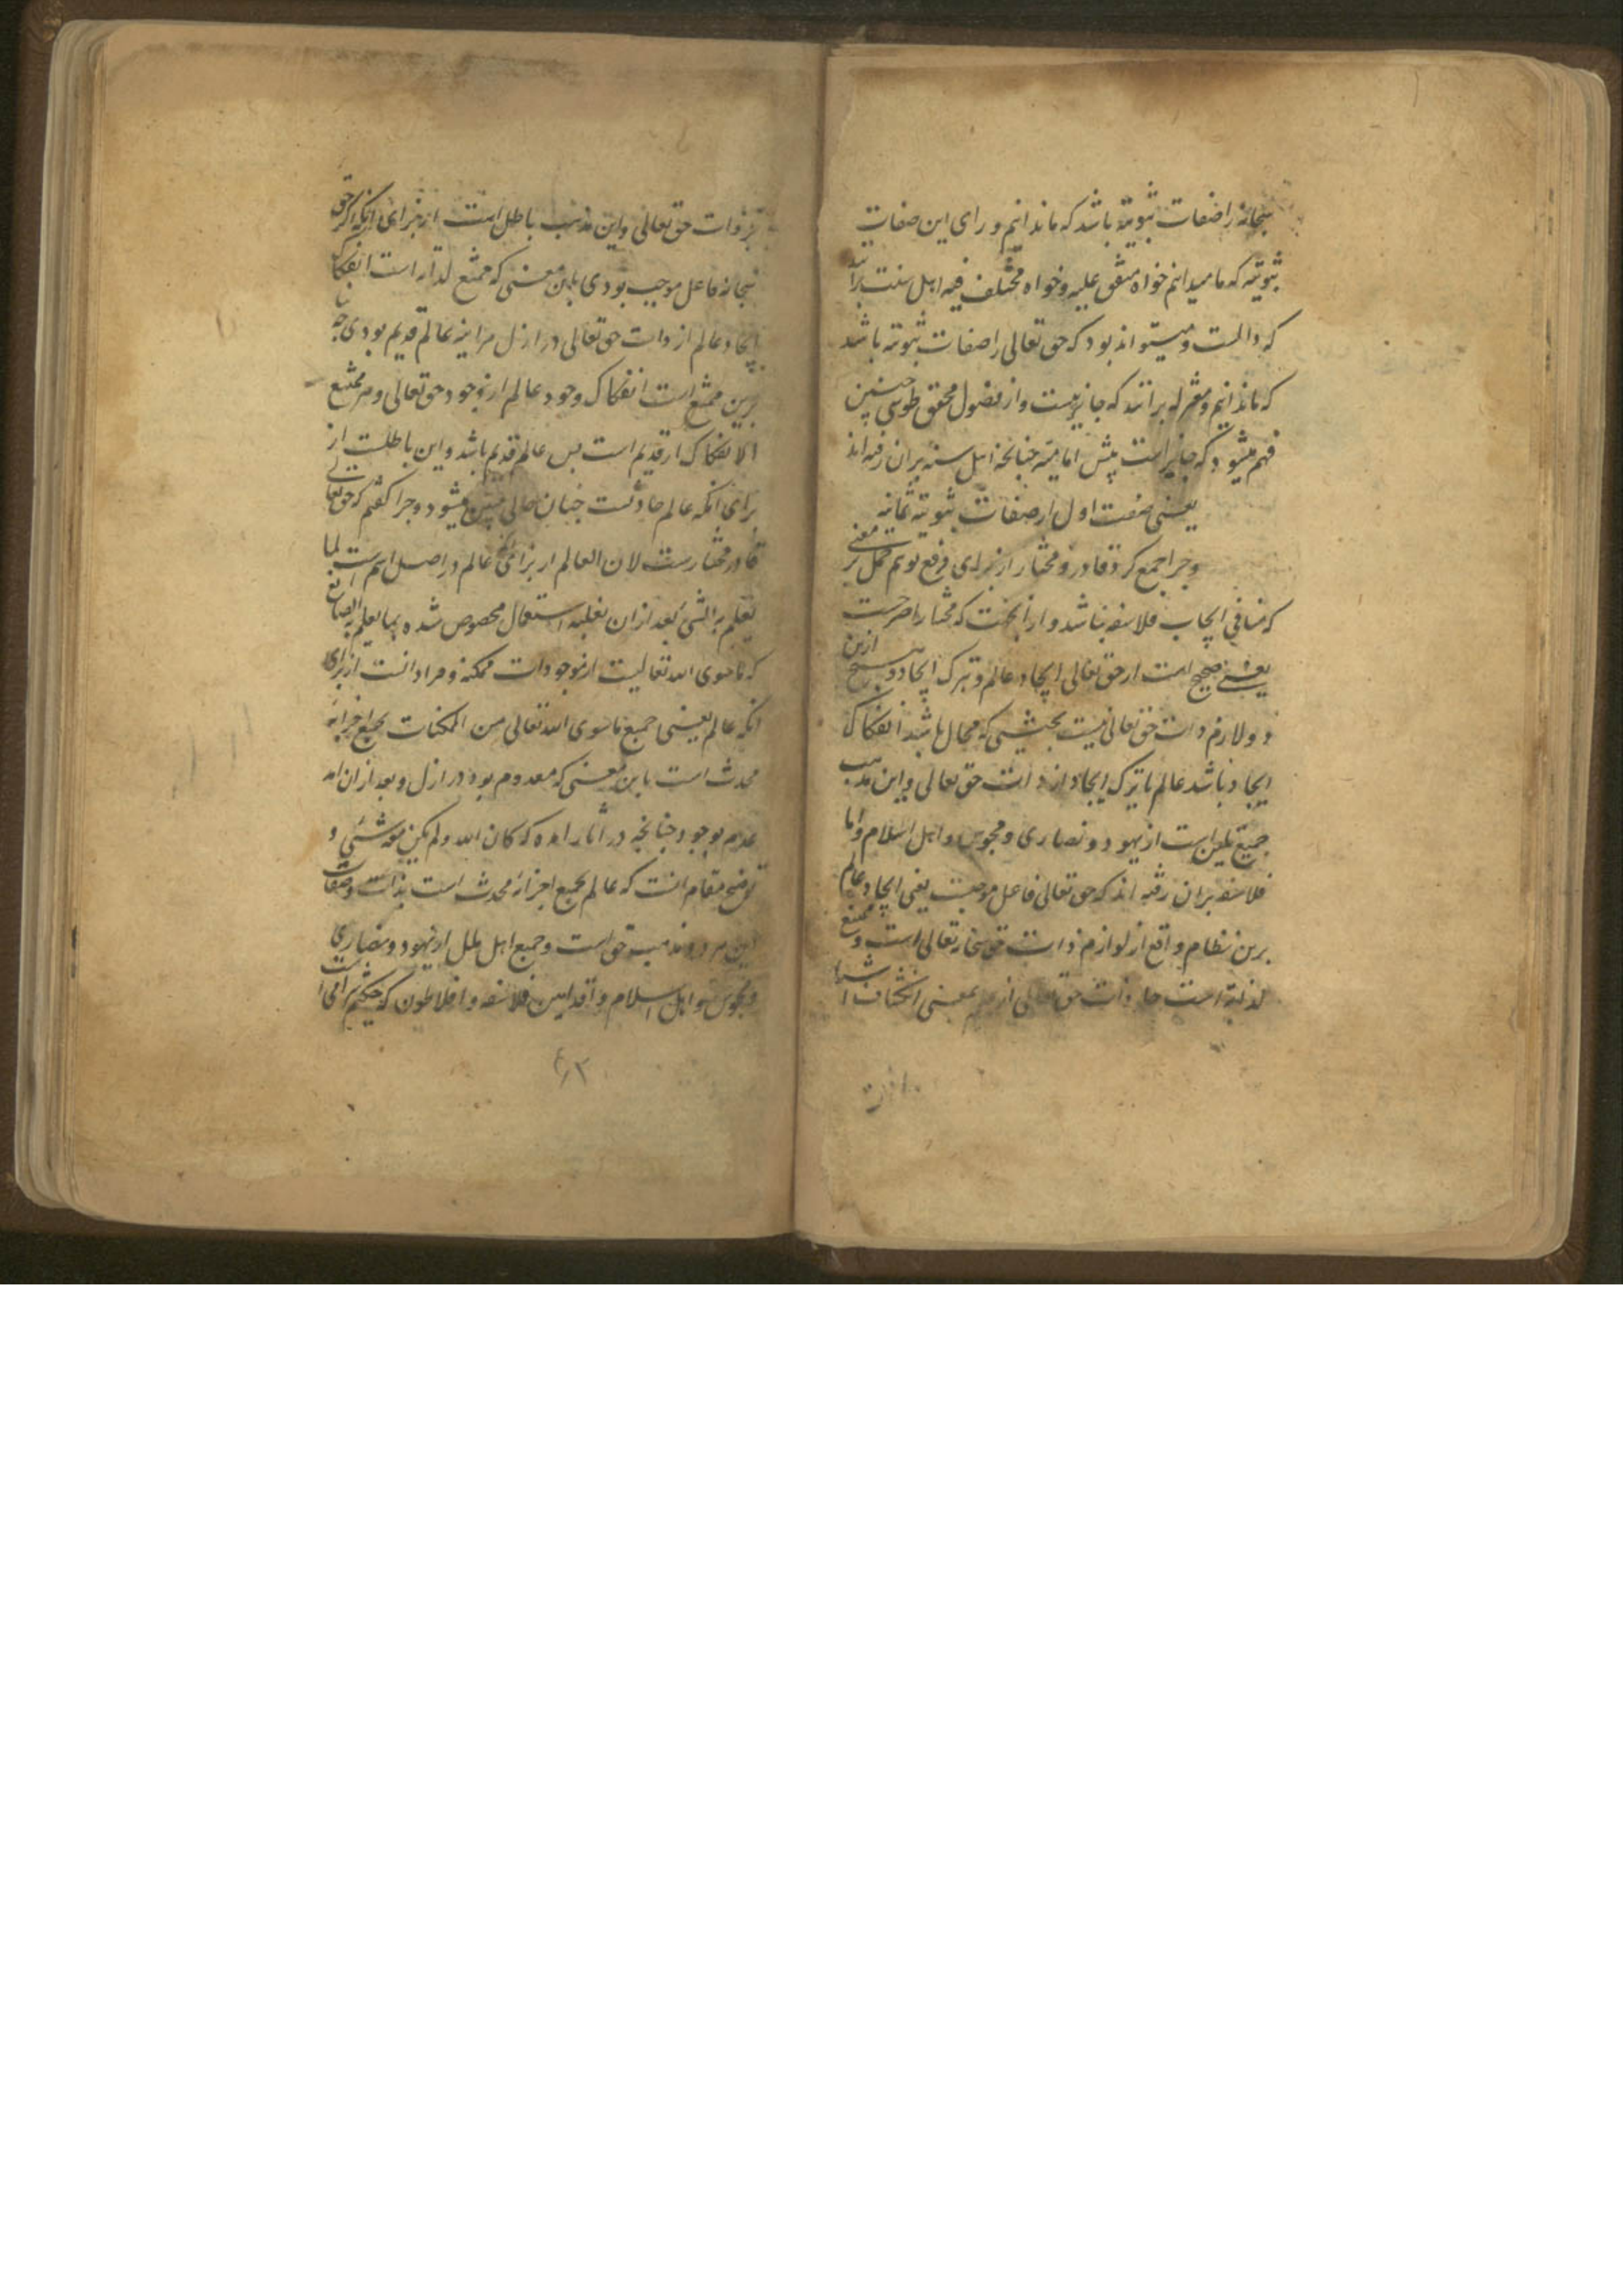 سبحانه را صفات ثبوتیه باشد که ما ندانیم ورای این صفات
ثبوتیه که ما میدانیم خواه متفق علیه و خواه مختلف فیه اهل سنت برانند
که و میتواند بود که حق تعالی را صفات ثبوتیه باشد
که ما ندانیم و معتزله برانند که جایز نیست و از فصول محقق طوسی چنین
فهم میشود که جایز است پیش امامیه چنانچه اهل سنه بران رفته اند
یعنی صفت اول از صفات ثبوتیه ثمانیه
و چرا جمع کرد قادر و مختار از برای رفع توهم حمل بر معنی
که منافی ایجاب فلاسفه نباشد و از
یعنی صحیح است از حق تعالی ایجاد عالم و ترک ایجاد و هیچ ازین
دو لازم ذات حق تعالی نیست بحیثیتی که محال باشد انفکاک
ایجاد باشد عالم یا ترک ایجاد از ذات حق تعالی و این مذهب
جمیع ملیین است از یهود و نصاری و مجوس و اهل اسلام و اما
فلاسفه بران رفته اند که حق تعالی فاعل موجبست یعنی ایجاد عالم
برین نظام واقع از لوازم ذات حق سبحانه تعالی است و ممتنع
لذاته است ذات حق تعالی از بمعنی انکشاف اشیا
بر ذات حق تعالی و این مذهب باطل است از برای انکه اگر حق
سبحانه فاعل موجب بودی باین معنی که ممتنع لذاته است انفکاک
ایجاد عالم از ذات حق تعالی در ازل هراینه عالم قدیم بودی چه
برین ممتنع است انفکاک وجود عالم از وجود حق تعالی و هر ممتنع
الانفکاک از قدیم است پس عالم قدیم باشد و این باطلست از
برای انکه عالم حادثست چنان حالی مبین میشود و چرا گفتم که حق تعالی
قادر مختارست لان العالم از برای انکه عالم در اصل اسم است لما
یعلم به الشئ بعد ازان بغلبه استعمال مخصوص شده بما یعلم به الصانع
که ما سوی الله تعالیست از موجودات ممکنه و مراد انست از برای
انکه عالم یعنی جمیع ما سوی الله تعالی من الممکنات بجمیع اجزائه
محدث است باین معنی که معدوم بوده در ازل و بعد ازان امد
عدم بوجود چنانچه در اثار امده که کان الله و لم یکن معه شئی و
توضیح مقام انست که عالم بجمیع اجزائه محدث است بذات و صفات
این مذهب حق است و جمیع اهل ملل از یهود و نصاری
و مجوس و اهل اسلام و اقدمین فلاسفه و افلاطون که حکیم